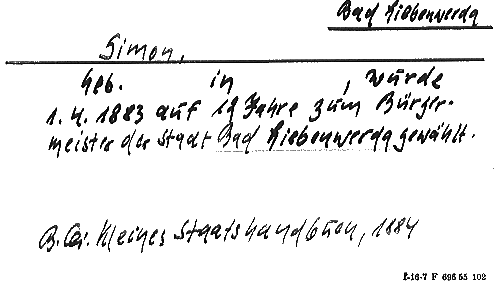 Bad Liebenwerda
Simon,
geb. in , wurde
1.4.1883 auf 12 Jahre zum Bürger-
meister der Stadt Bad Liebenwerda gewählt.
Kleines Staatshandbuch, 1884
F 696 55 102